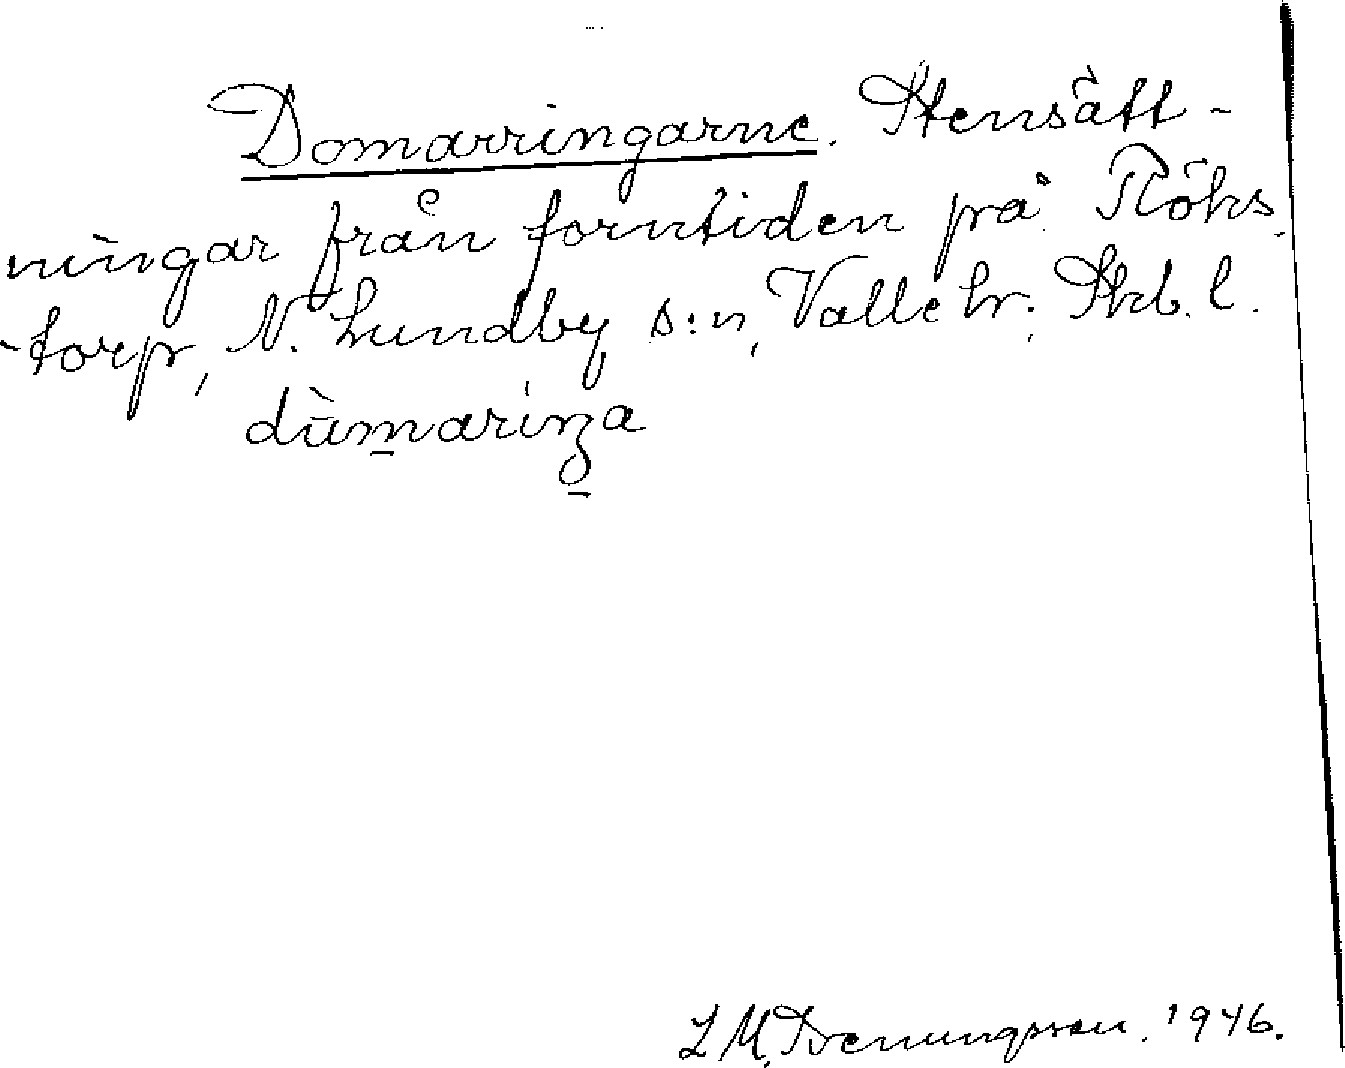 Domarringarne. Stensätt-
ningar från forntiden på Röks
-torp, N. Lundby s:n, Valle hr. Skb. l.
dùmariŋa
L M. Svenungsson. 1946.